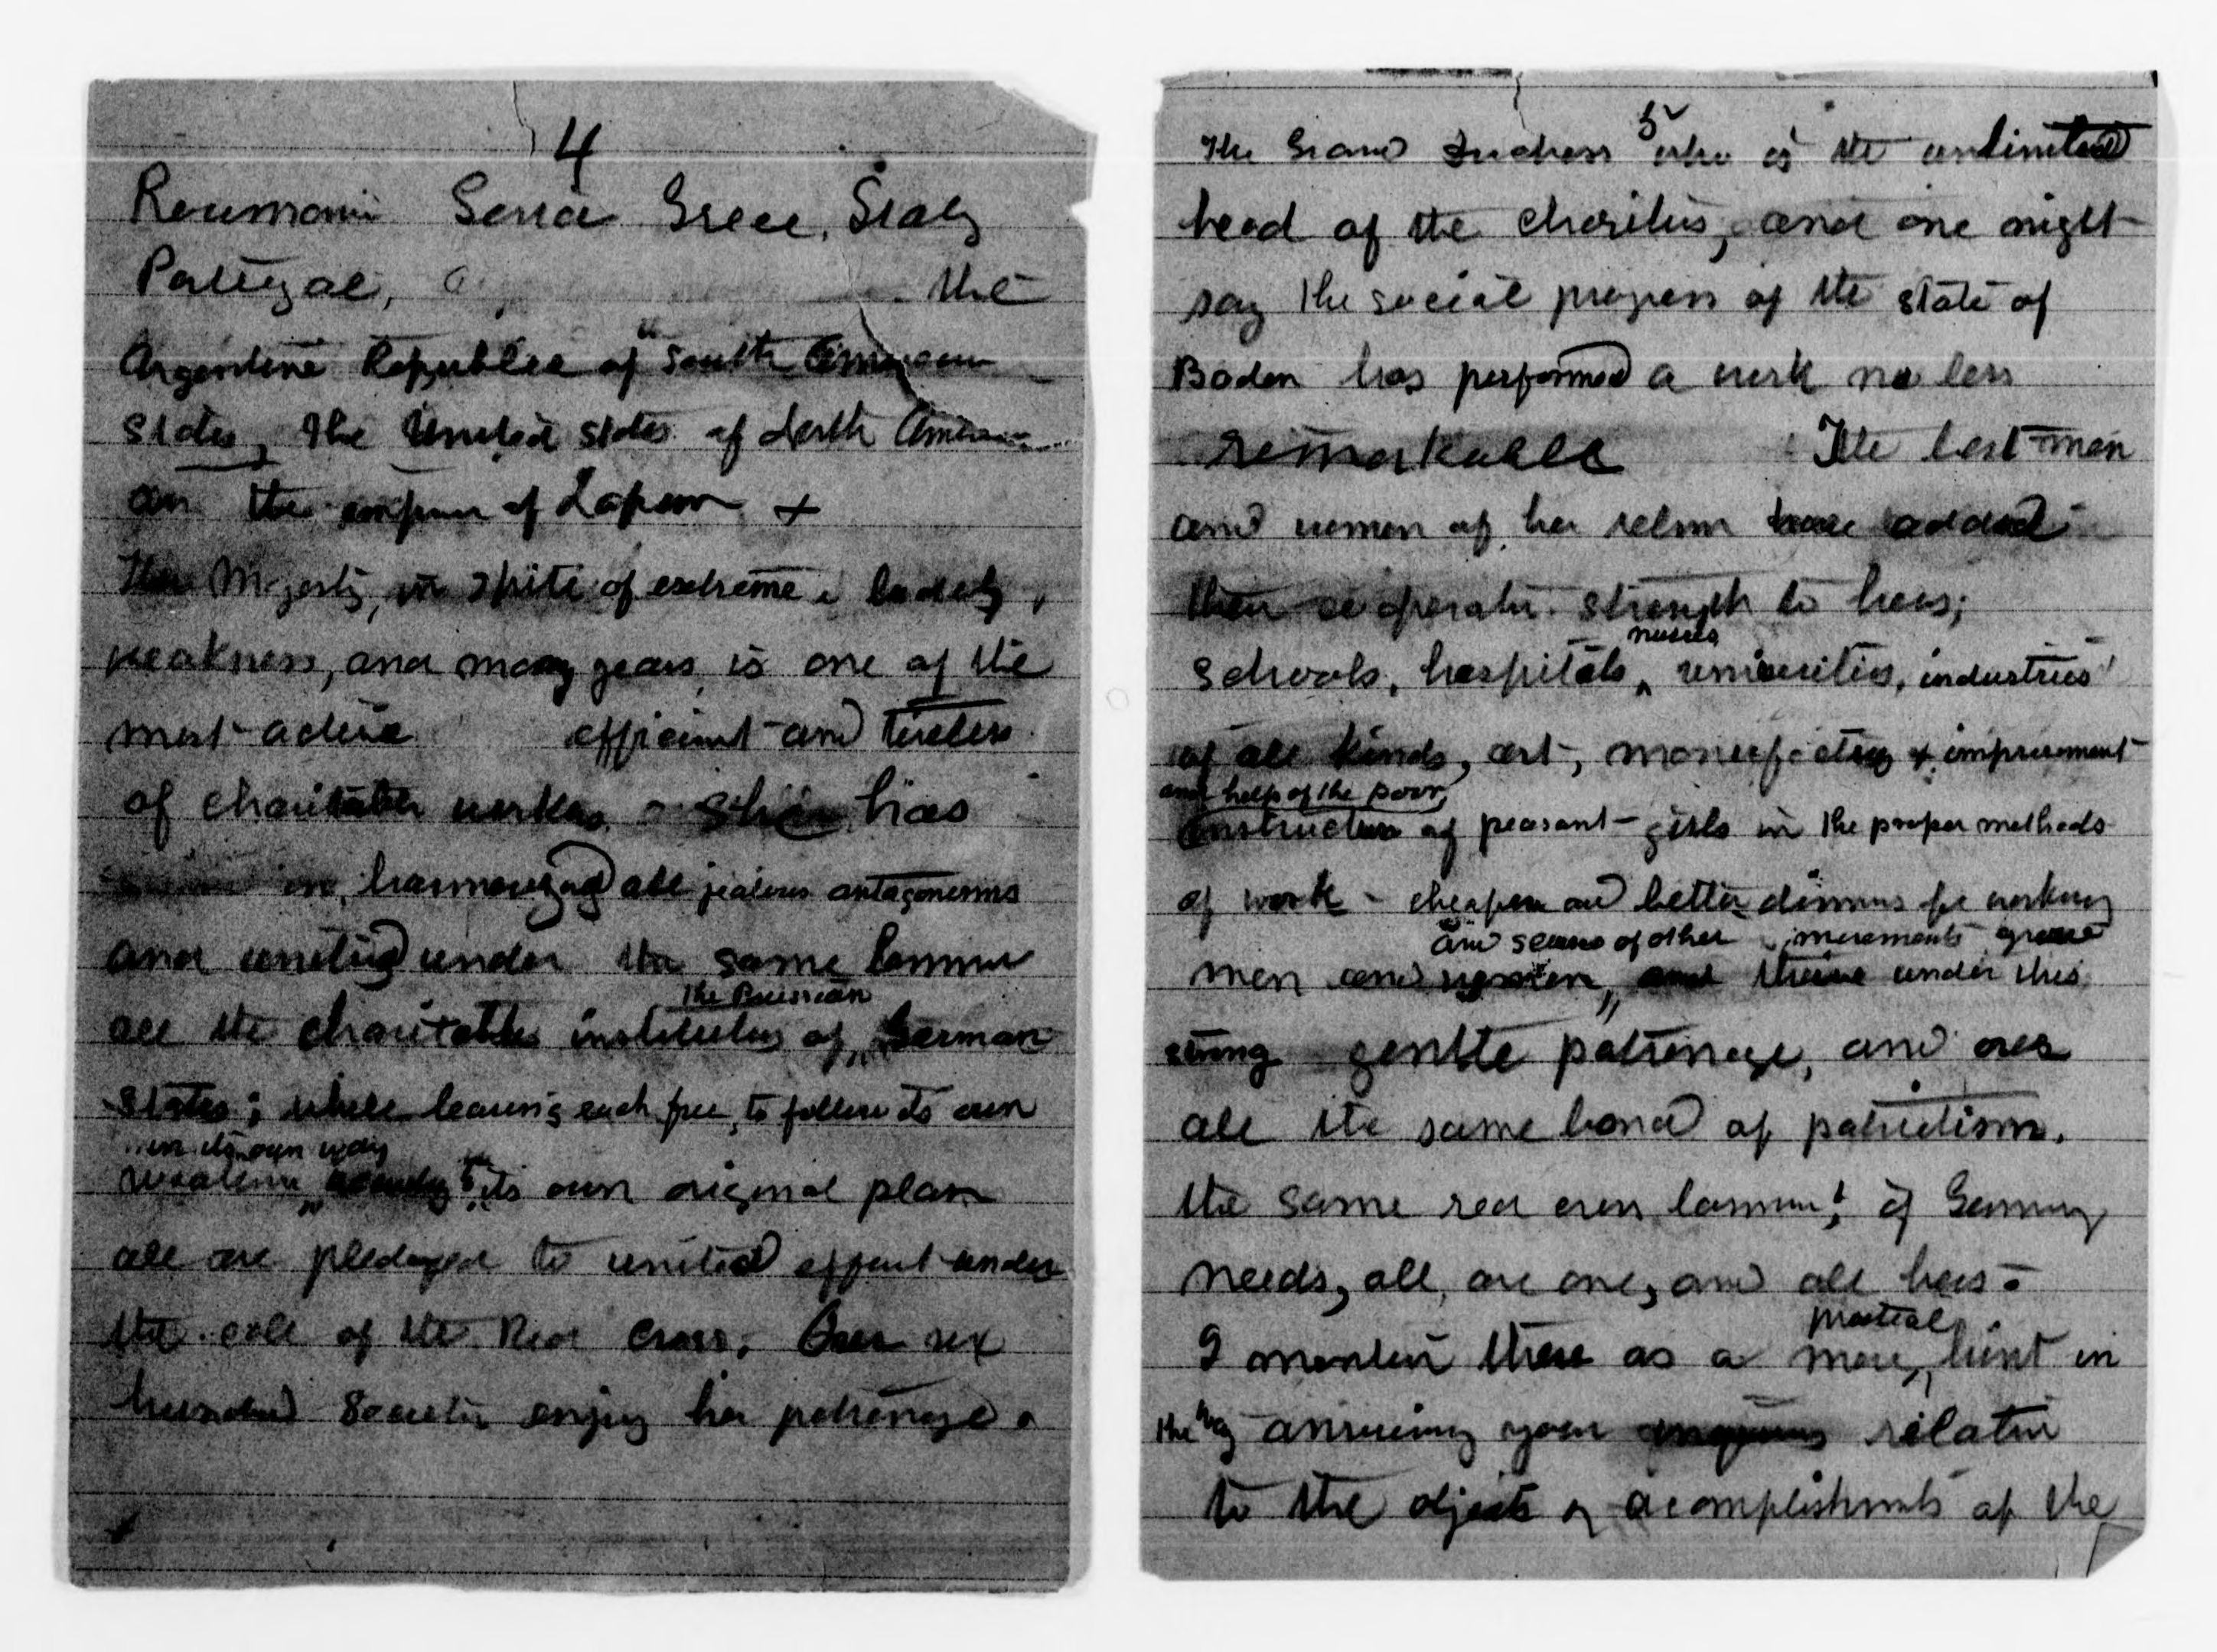 4
Roumania Servia Greece, Italy
Portugal, the
Argentine Republic of South American
States, the United States of North America
an the empire of Japan +
Her Majesty, in spite of extreme bodily
weakness, and many years is one of the
most active efficient and tireless
of charitable workers - She has
in harmonizing all jealous antagonisms
and uniting under the same banner
the Prussian
all the charitable institutions of German
States; while leaving each free, to follow its own
in its own way
its own original plan
all are pledged to united effort under
the call of the Red Cross. Over six
hundred Societies enjoy her patronage
5
The Grand Duchess who is the unlimited
head of the charities, and one might
say the social progress of the state of
Baden has performed a work no less
remarkable The best men
and women of her relm have added
their co operative strength to hers;
nurses
schools, hospitals, universities, industries
of all kinds, art, manufactory & improvement
and help of the poor,
instruction of peasant girls in the proper methods
of work - cheaper and better dinners for working
and scores of other movements
men and women, thrive under this
strong gentle patronage, and over
all the same bond of patriotism.
the same red cross banner, if Germany
needs, all, are one, and all hers -
partial
I mention these as a mere hint in
the way answering your relative
to the objects & acomplishments of the